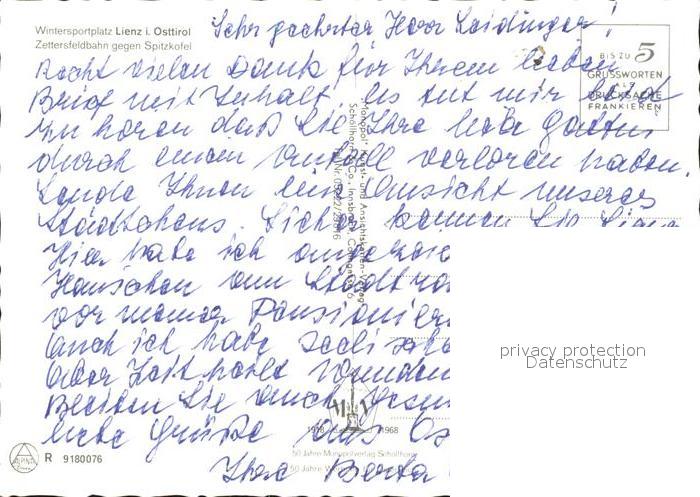 Wintersportplatz Lienz i. Osttirol
Zettersfeldbahn gegen Spitzkofel
Sehr geehrter Herr Leidinger!
BIS ZU 5
GRUSSWORTEN
ALS
DRUCKSACHE
FRANKIEREN
Recht vielen Dank für Ihren lieben
Brief mit Inhalt. Es tut mir leid
zu hören daß Sie Ihre liebe Gattin
durch einen Unfall verloren haben.
Sende Ihnen eine Ansicht unseres
Städtchens. Sicher kennen Sie Lienz
Hier habe ich
Häuschen am Stadt
vor meiner Pensionier
Auch ich habe
Aber Zeit heilt Wunden
Bleiben Sie auch gesun
liebe Grüße aus Os
Ihre Berta
privacy protection
Datenschutz
MV
1918 1968
50 Jahre Monopolverlag Schöllhorn
R 9180076